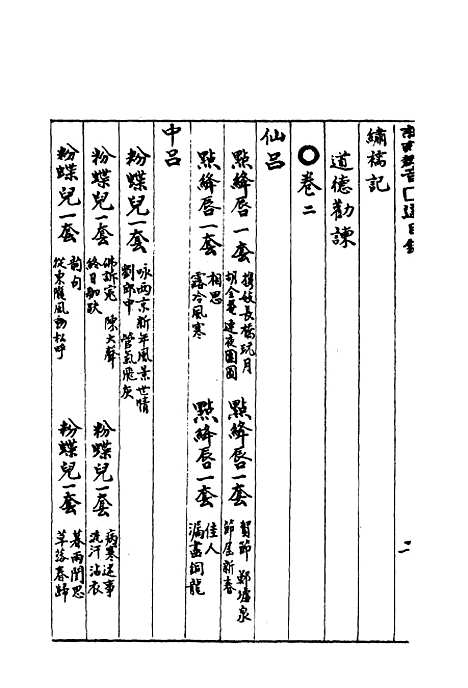 繡襦記
道德勸諫
○卷二
仙呂
點絳唇一套 攜妓長橋玩月 胡全菴 連夜團圓 點絳唇一套 賀節 鄭墟泉 節屆新春
點絳唇一套 相思 露冷風寒 點絳唇一套 佳人 漏盡銅龍
中呂
粉蝶兒一套 咏西京新年風景世情 劉郎中 管氣飛灰
粉蝶兒一套 佛訴冤 陳大聲 終日跏趺 粉蝶兒一套 病寒述事 洗汗沾衣
粉蝶兒一套 韵句 從東隴風動松呼 粉蝶兒一套 暮雨閨思 草落春歸
二